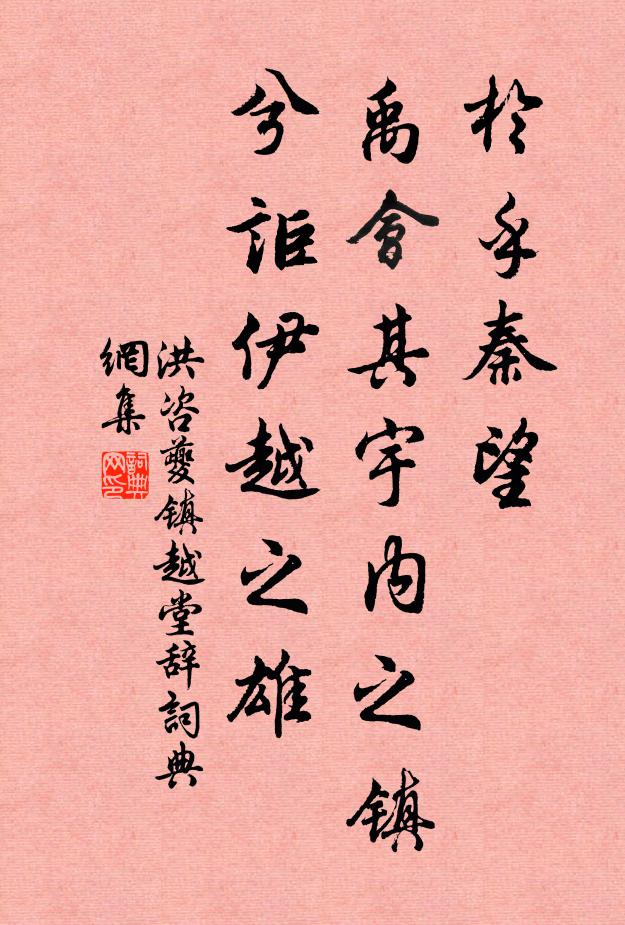 於乎秦望
禹會其宇内之鎮
兮詎伊越之雄
洪咨夔鎮越堂辞詞典
網集
詞典网印